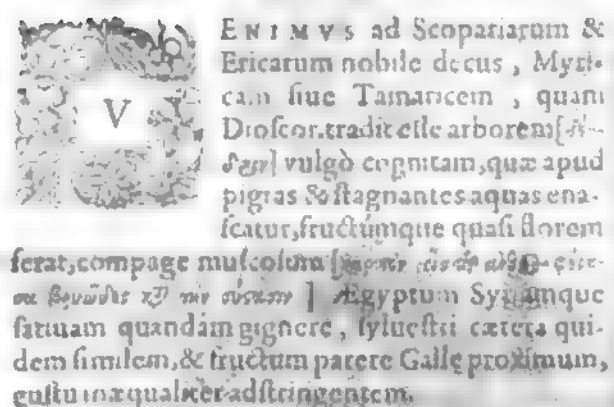 VENIMVS ad Scopariarum &
Ericarum nobile decus, Myri-
cam siue Tamaricem, quam
Dioscor. tradit esse arborem [
] vulgò cognitam, quæ apud
pigras & stagnantes aquas ena-
scatur, fructúmque quasi florem
ferat, compage muscosum [
] Ægyptum Syriamque
satiuam quandam gignere, syluestri cætera qui-
dem similem, & fructum parere Gallę proximum,
gustu inæqualiter adstringentem.